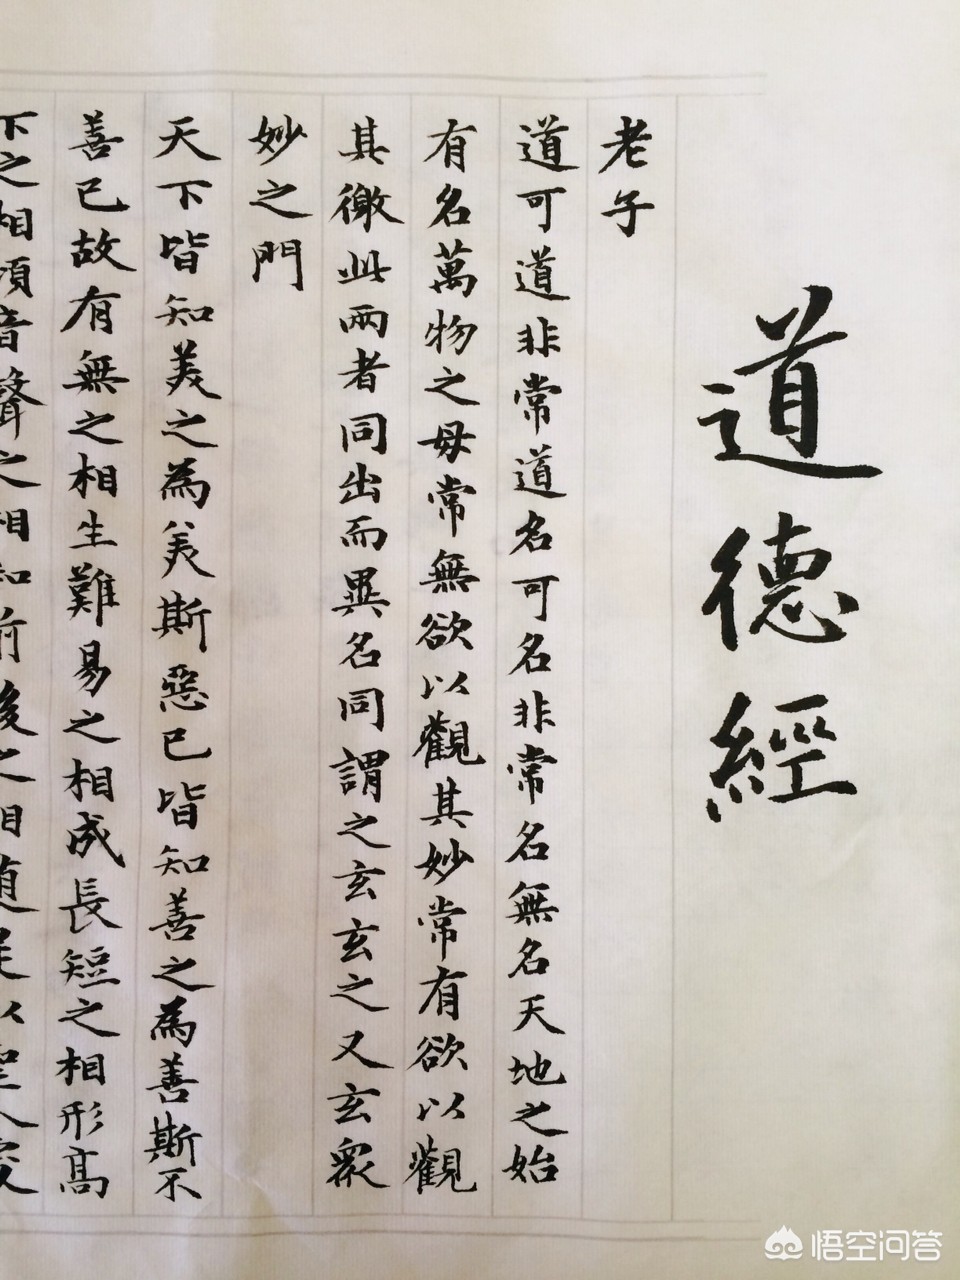 道德經
老子
道可道非常道名可名非常名無名天地之始
有名萬物之母常無欲以觀其妙常有欲以觀
其徼此兩者同出而異名同謂之玄玄之又玄眾
妙之門
天下皆知美之為美斯惡已皆知善之為善斯不
善已故有無之相生難易之相成長短之相形高
下之相傾音聲之相和前後之相隨是以聖人處
悟空问答